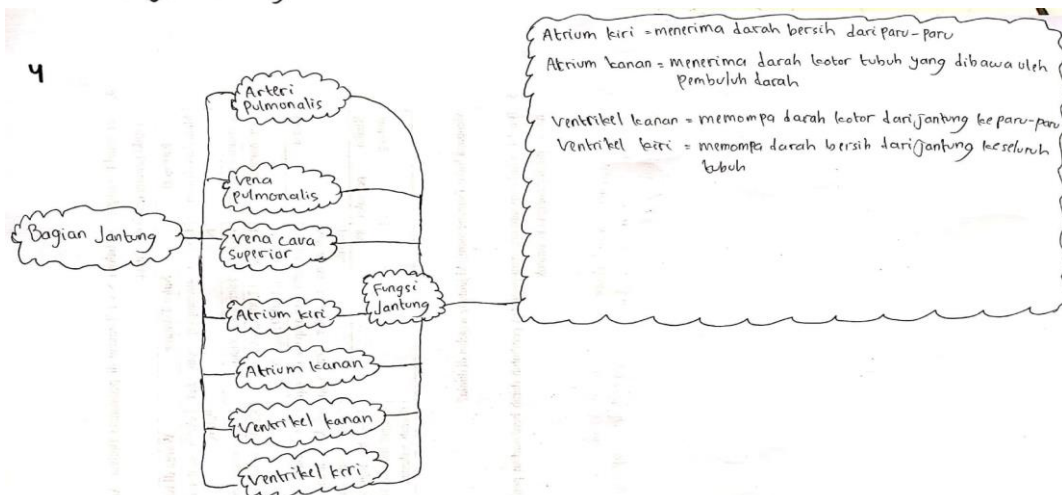 4
Bagian Jantung
Arteri
Pulmonalis
Vena
pulmonalis
Vena cava
superior
Atrium kiri
Atrium kanan
Ventrikel kanan
Ventrikel kiri
Fungsi
Jantung
Atrium kiri = menerima darah bersih dari paru-paru
Atrium kanan = menerima darah kotor tubuh yang dibawa oleh
pembuluh darah
Ventrikel kanan = memompa darah kotor dari jantung ke paru-paru
Ventrikel kiri = memompa darah bersih dari jantung keseluruh
tubuh